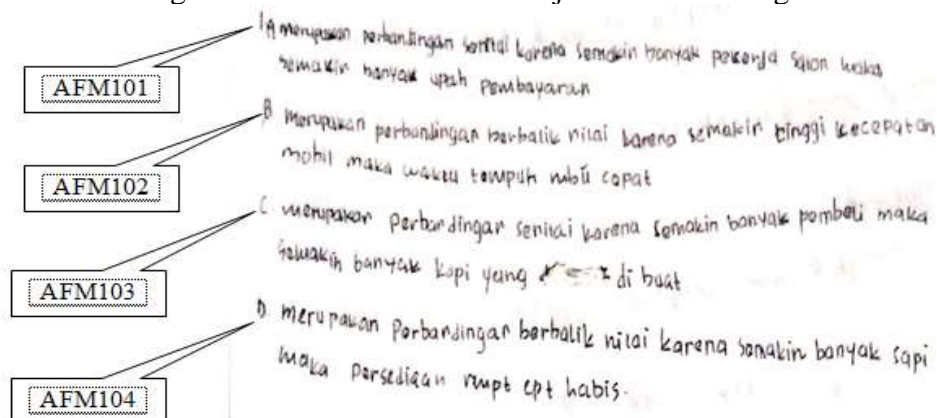 1 A merupakan perbandingan senilai karena semakin banyak pekerja salon maka
semakin banyak upah pembayaran
AFM101
B merupakan perbandingan berbalik nilai karena semakin tinggi kecepatan
mobil maka waktu tempuh cepat
AFM102
C. merupakan perbandingan senilai karena semakin banyak pembeli maka
semakin banyak kopi yang di buat
AFM103
D. merupakan perbandingan berbalik nilai karena semakin banyak sapi
maka persediaan habis.
AFM104